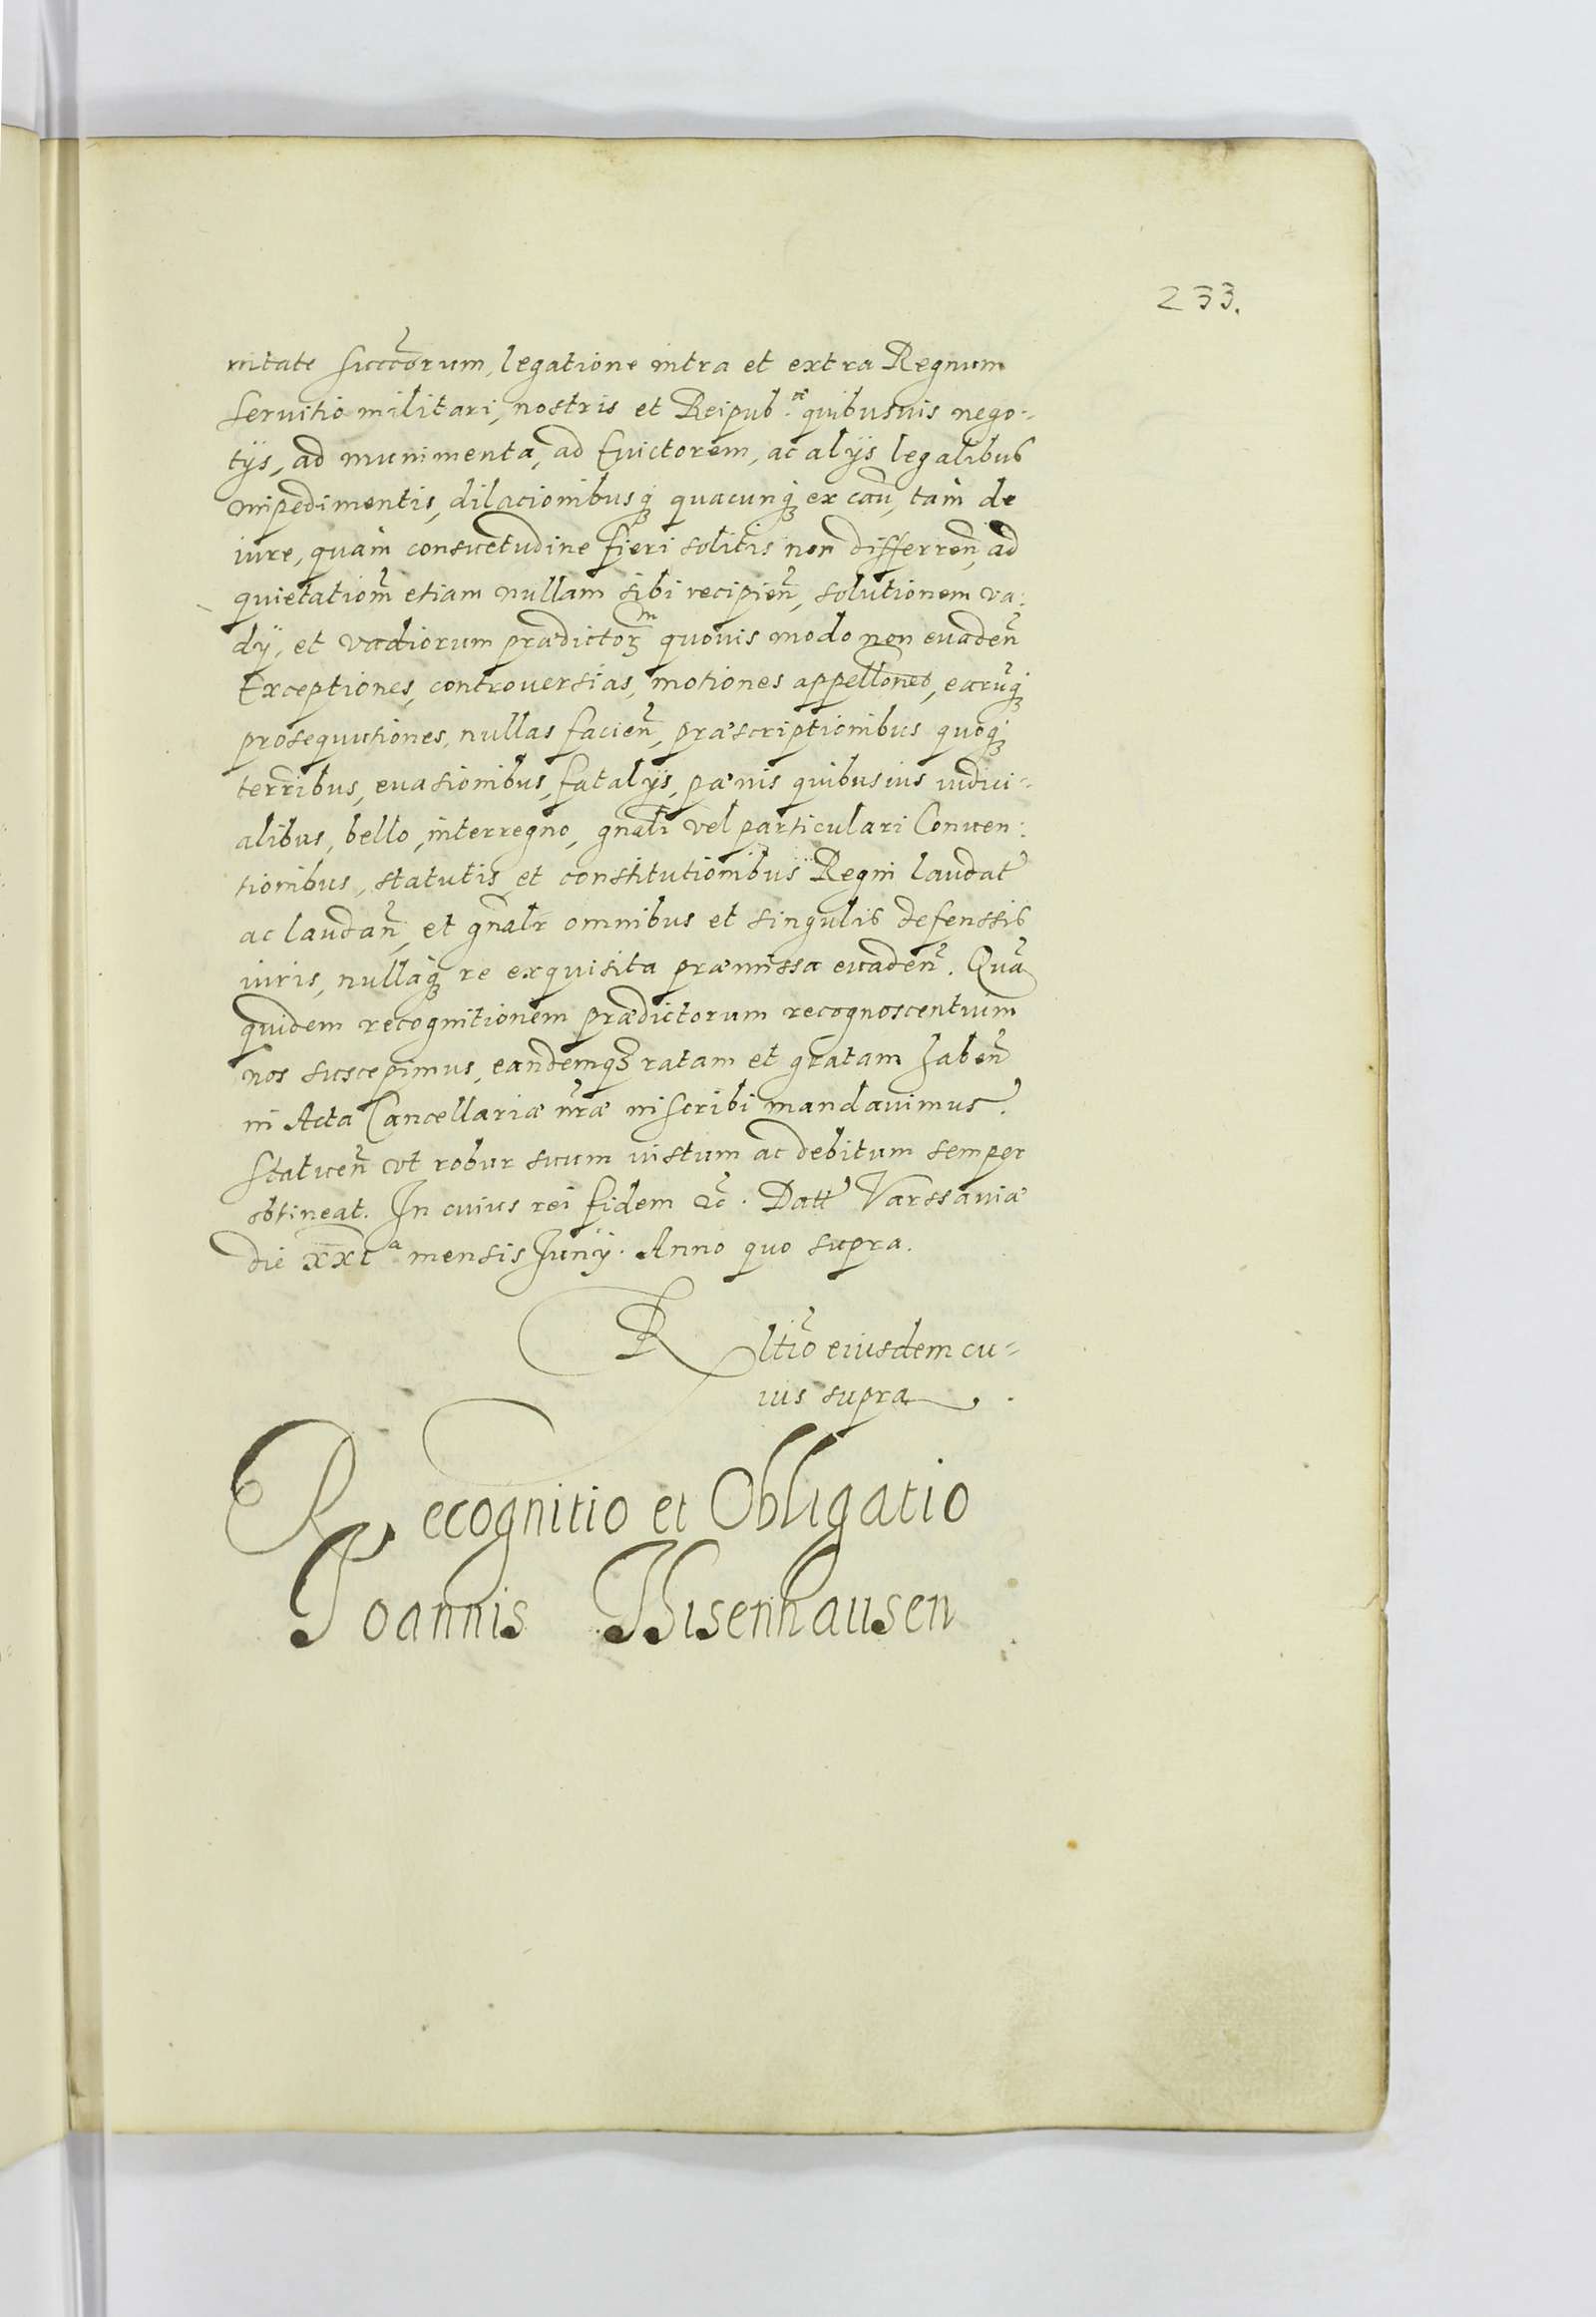 233.
nitate succorum, legatione intra et extra Regnum
servitio militari, nostris et Reipub.æ quibusuis nego-
tijs, ad munimenta, ad Euictorem, ac alijs legalibus
impedimentis, dilacionibusq; quacunq; ex cau, tam de
iure, quam consuetudine fieri solitis non differren, ad
quietatiom etiam nullam sibi recipien, solutionem va:
dÿ, et vadiorum prædictorm quouis modo non euaden
Exceptiones, controuersias, motiones appellones, earuq;
prosequutiones, nullas facien, præscriptionibus quoq;
terribus, euasionibus, fatalijs, pænis quibusius iudici-
alibus, bello, interregno, gnali vel particulari Conuen:
tionibus, statutis et constitutionibus Regni laudat
ac laudan, et gnalr omnibus et singulis defenssis
iuris, nullaq; re exquisita præmissa euaden. Qua
quidem recognitionem prædictorum recognoscentium
nos suscepimus, eandemq; ratam et gratam haben
in Acta Cancellariæ nræ inscribi mandauimus.
Statuen vt robur suum iustum ac debitum semper
obtineat. In cuius rei fidem &c. Datt Varssauiæ
die XXIa mensis Junÿ. Anno quo supra.
Rltio eiusdem cu-
ius supra.
Recognitio et Obligatio
Joannis Tisenhausen